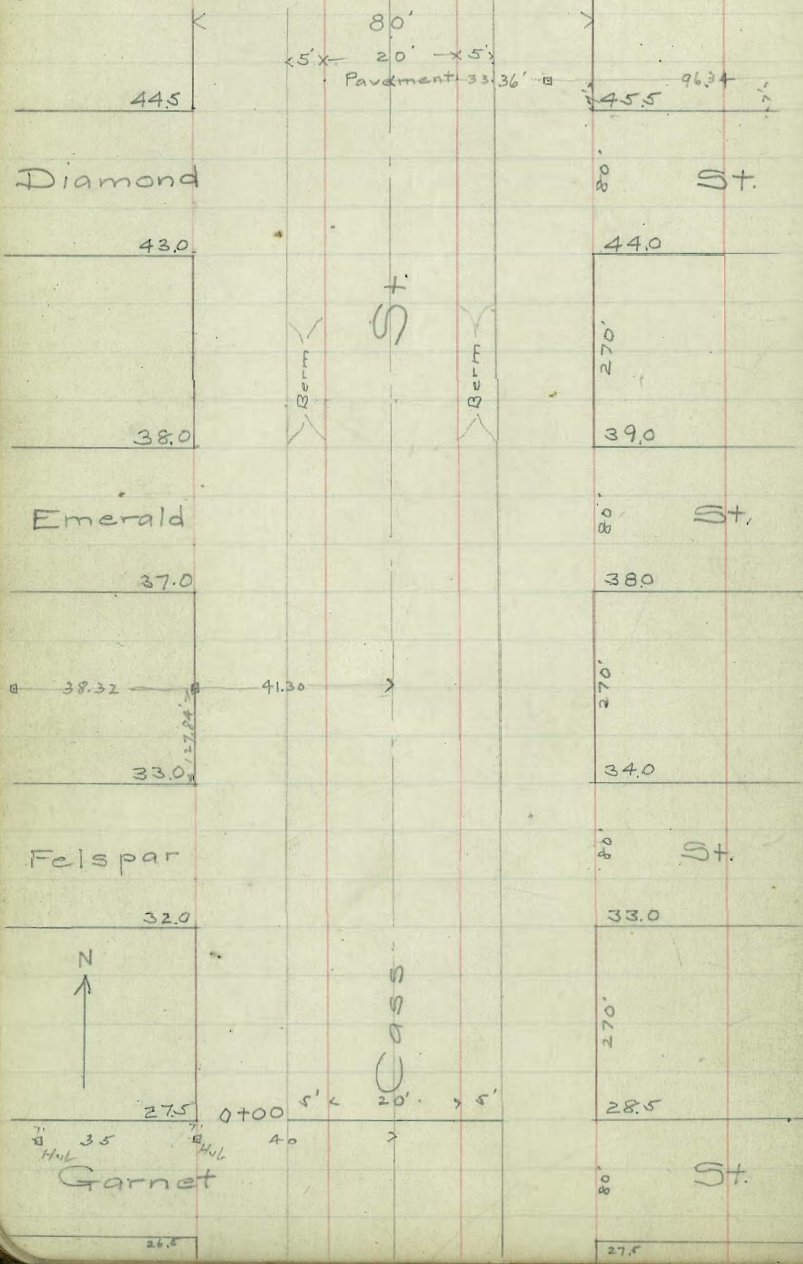 80'
5' 20' 5'
Pavement 33.36' 96.34
44.5 45.5 7'
Diamond 80' St.
43.0 44.0
St.
Berm Berm 270'
38.0 39.0
Emerald 80' St.
37.0 38.0
38.32 41.30 270'
127.84'
33.0 34.0
Felspar 80' St.
32.0 33.0
N
Cass 270'
27.5 0+00 5' 20' 5' 28.5
7' 35 7' 40
Hub Hub
Garnet 80' St.
26.5 27.5